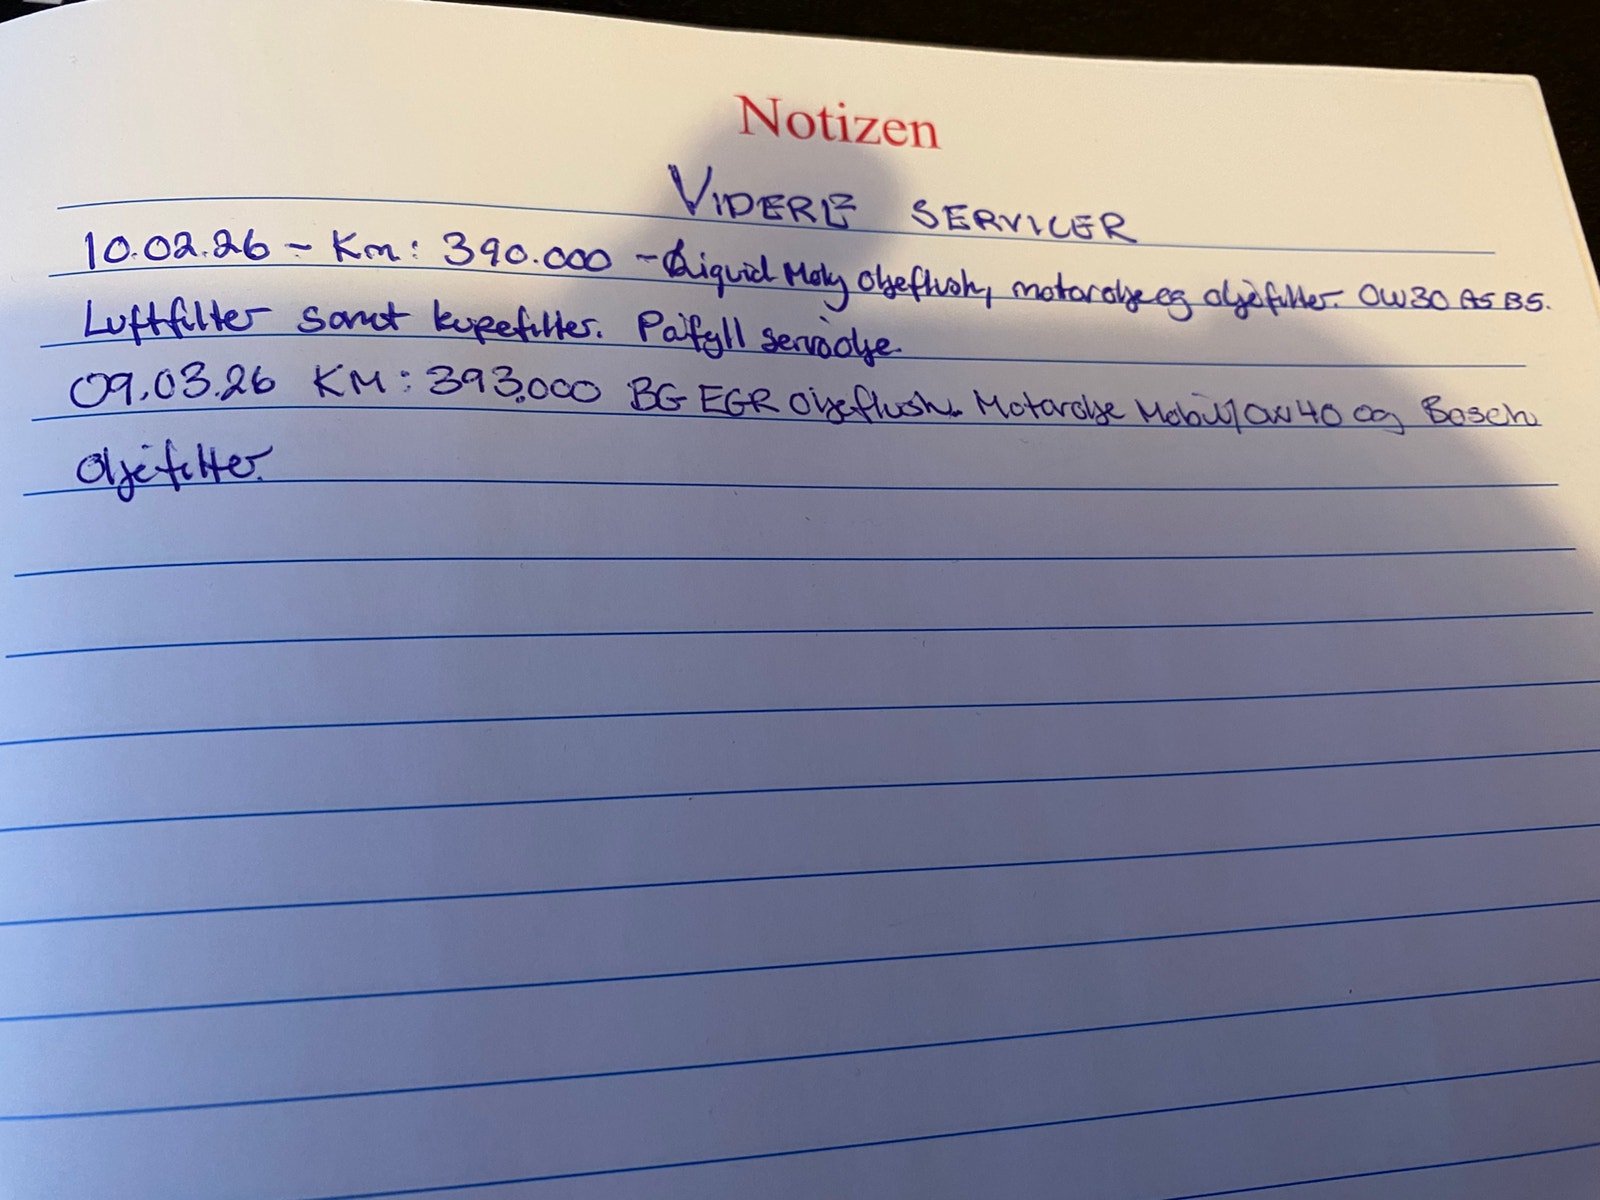 Notizen
VIDERE SERVICER
10.02.26 - Km: 390.000 - Liquid Moly oljeflush, motorolje og oljefilter. 0W30 A5 B5.
Luftfilter samt kupefilter. Påfyll servoolje.
09.03.26 KM: 393.000 BG EGR oljeflush. Motorolje Mobil1 0W40 og Bosch
Oljefilter.